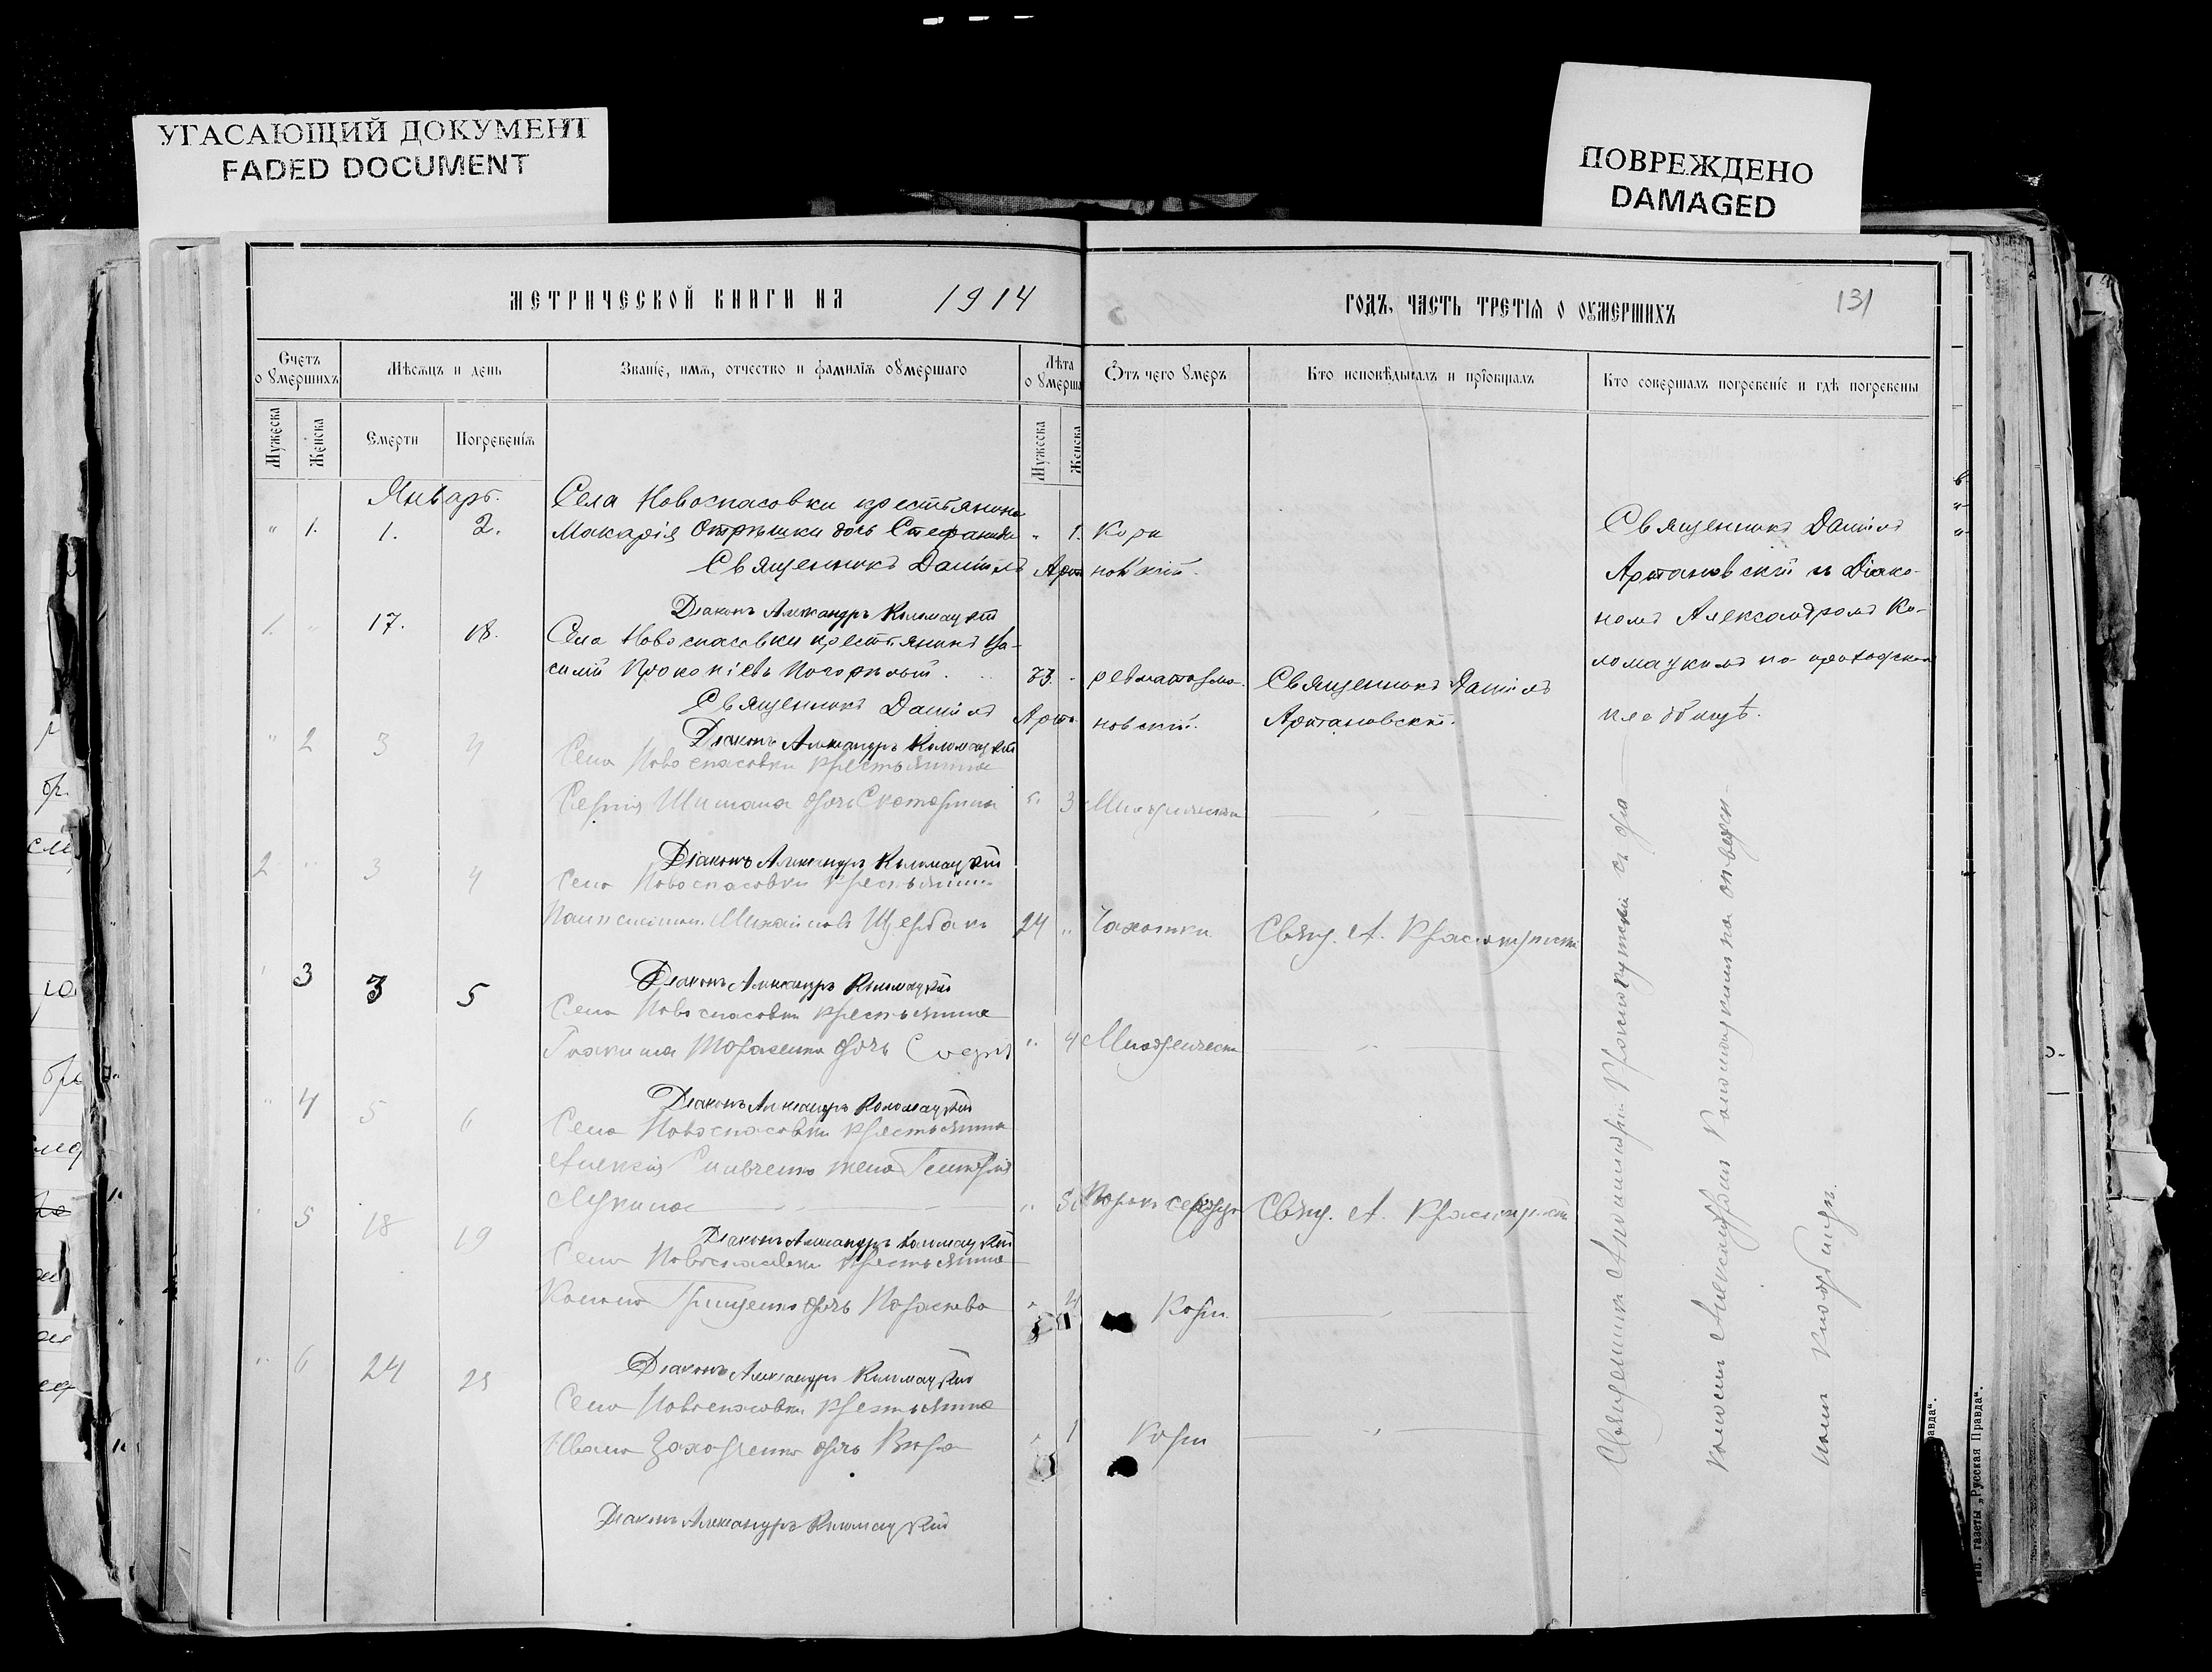 УГАСАЮЩИЙ ДОКУМЕНТ
FADED DOCUMENT
ПОВРЕЖДЕНО
DAMAGED
МЕТРИЧЕСКОЙ КНИГИ НА 1914
ГОДЪ, ЧАСТЬ ТРЕТІЯ О ОУМЕРШИХЪ
131
Счетъ о Умершихъ
Мѣсяцъ и день
Званіе, имя, отчество и фамилія оумершаго
Лѣта оумерша
Отъ чего умеръ
Кто исповѣдывалъ и пріобщалъ
Кто совершалъ погребеніе и гдѣ погребены
Мужеска
Женска
Смерти
Погребенія
Мужеска
Женска
Январь.
Села Новоспасовки крестьянина
" 1. 1. 2. Макарія Отрѣшки дочь Стефанида " 1. Кори
Священникъ Даніилъ Артановскій.
Священникъ Даніилъ
Артановскій съ Діако-
номъ Александромъ Ко-
ломацкимъ на приходском
кладбищѣ.
Діаконъ Александръ Коломацкій
1. " 17. 18. Села Новоспасовки крестьянинъ Ва-
силій Прокопіевъ Погорѣлый. 73. " ревматизма. Священникъ Даніилъ
Священникъ Даніилъ Артановскій. Артановскій.
Діаконъ Александръ Коломацкій
" 2 3 4 Села Новоспасовки крестьянина
Сергія Шишала дочь Екатерина " 3 Младенческ
Діаконъ Александръ Коломацкій
2 " 3 4 Села Новоспасовки крестьянин
Михайловъ Щербакъ 24 " Чахотки Свящ. А. Краснокутскій
Діаконъ Александръ Коломацкій
" 3 3 5 Села Новоспасовки крестьянина
Іоакима Тарасенка дочь " 4 Младенческ
Діаконъ Александръ Коломацкій
" 4 5 6 Села Новоспасовки крестьянина
Алексія жена Гликерія
Лукина " Порокъ сердца Свящ. А. Краснокутскій
Діаконъ Александръ Коломацкій
" 5 18 19 Села Новоспасовки крестьянина
Грищенка дочь Параскева " 4 Кори
Діаконъ Александръ Коломацкій
" 6 24 25 Села Новоспасовки крестьянина
Ивана Захарченка дочь Вѣра " 1 Кори
Діаконъ Александръ Коломацкій
Священникъ Краснокутскій съ діа
кономъ Александромъ Коломацкимъ на отведен-
номъ кладбищѣ.
тип. газеты „Русская Правда“.